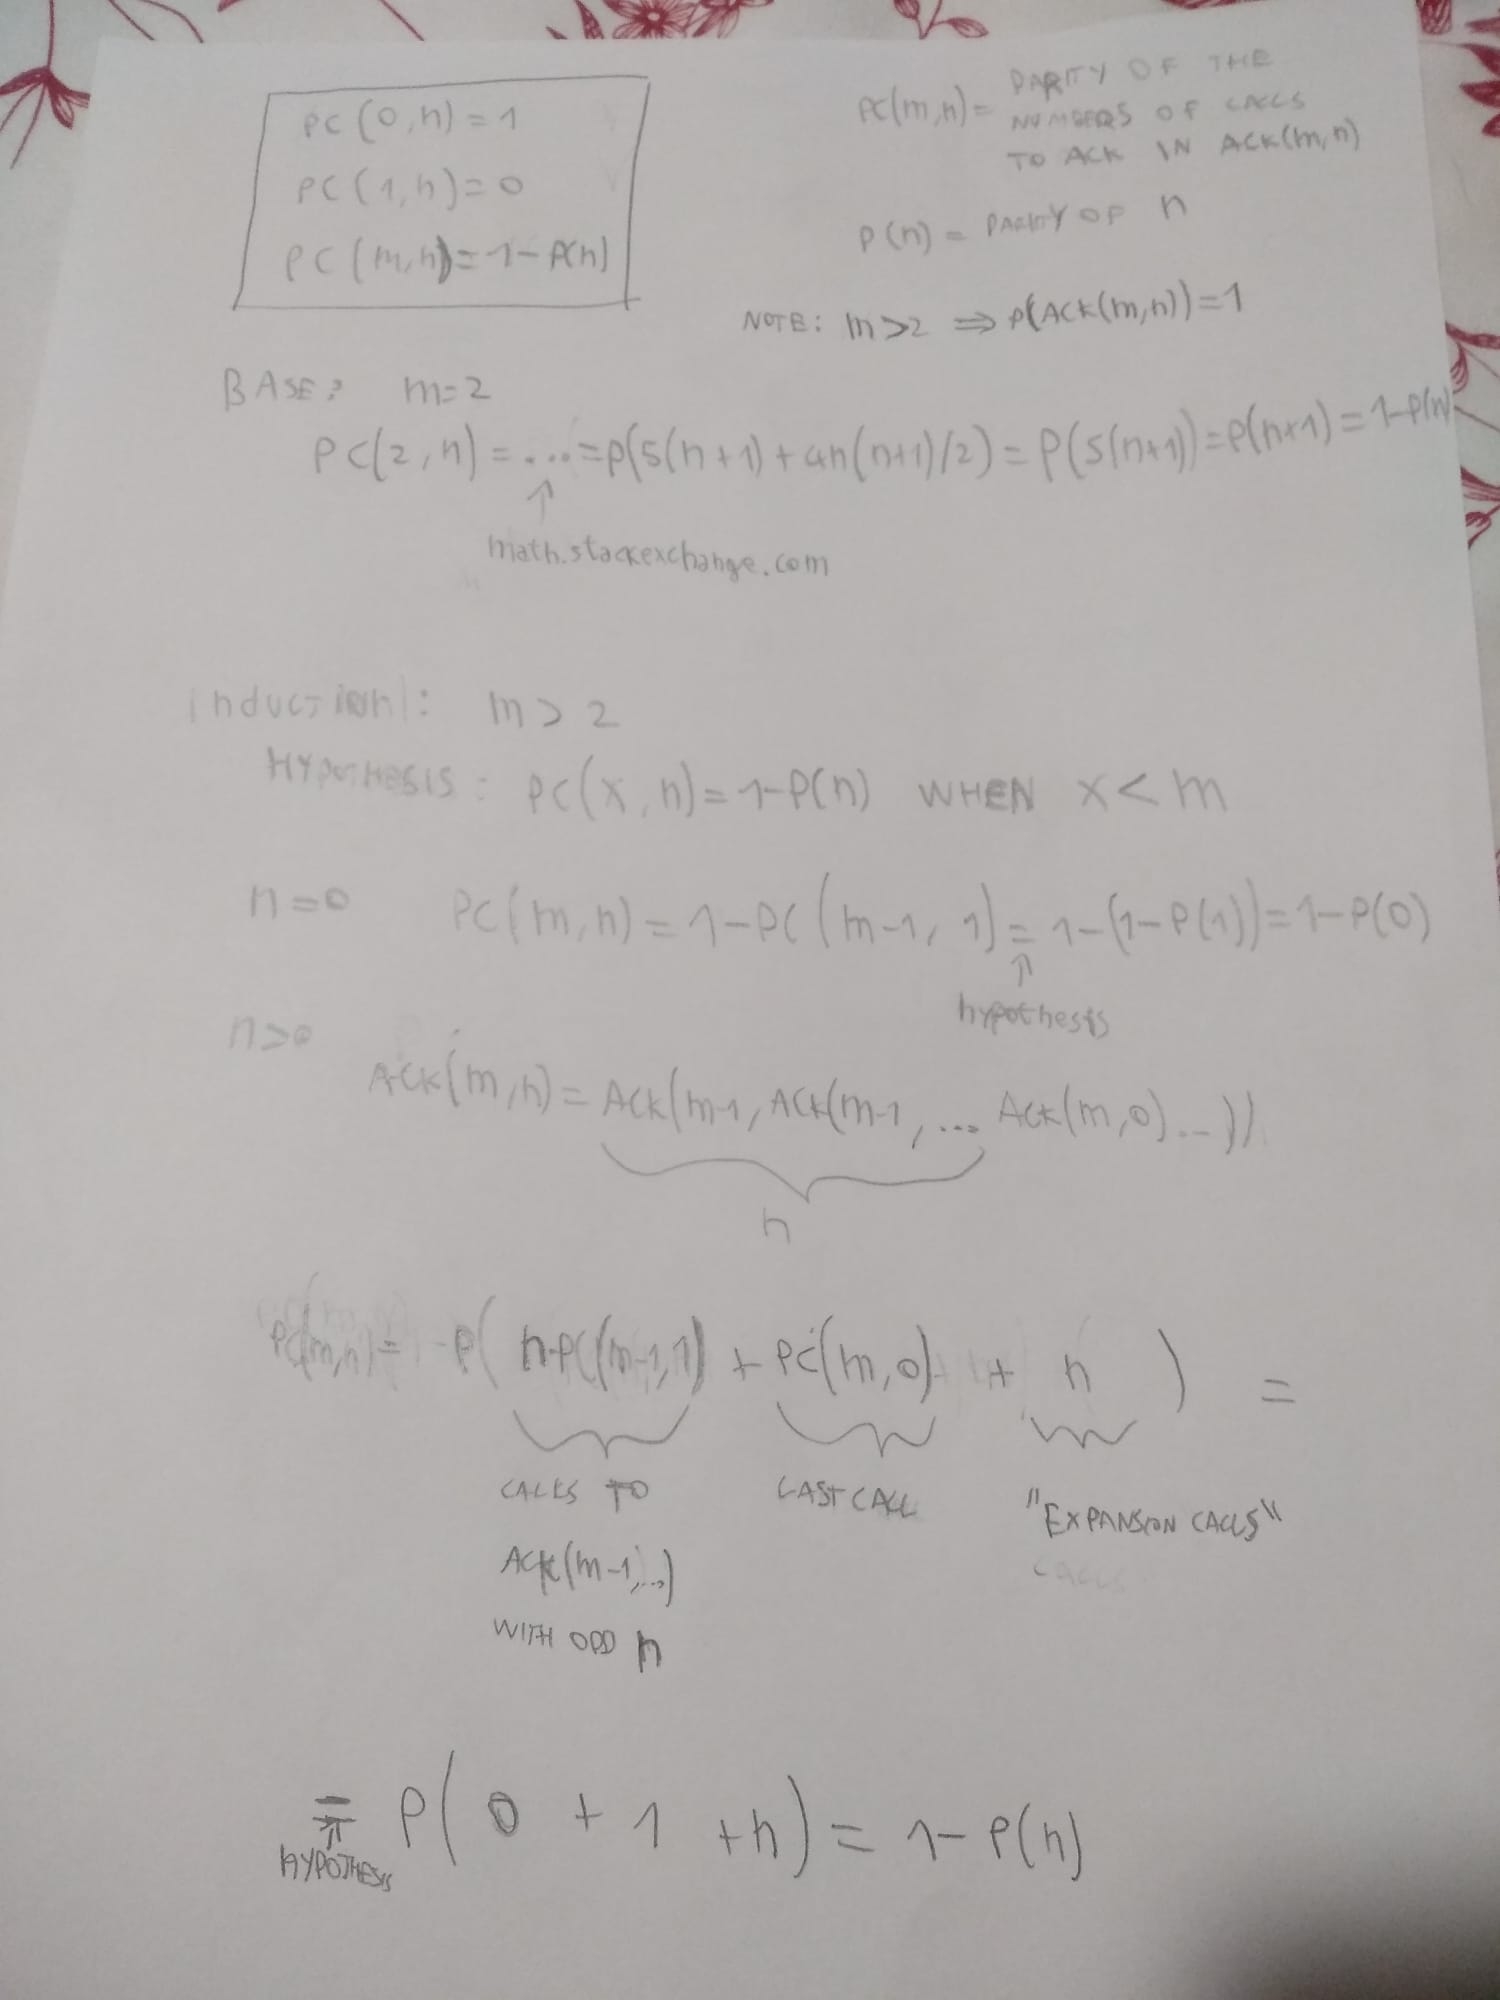 PC(0,n)=1
PC(1,n)=0
PC(m,n)=1-P(n)
PC(m,n)= PARITY OF THE
NUMBERS OF CALLS
TO ACK IN ACK(m,n)
P(n) = PARITY OF n
NOTE: m>2 ⇒ P(ACK(m,n))=1
BASE: m=2
PC(2,n)=...=P(5(n+1)+4n(n+1)/2)=P(5(n+1))=P(n+1)=1-P(n)
↑
math.stackexchange.com
induction: m>2
HYPOTHESIS: PC(x,n)=1-P(n) WHEN x<m
n=0 PC(m,n)=1-PC(m-1,1)=1-(1-P(1))=1-P(0)
↑
hypothesis
n>0
ACK(m,n)=ACK(m-1,ACK(m-1,... ACK(m,0)...))
n
PC(m,n)= P(n·PC(m-1,1)+PC(m,0)+n)=
CALLS TO LAST CALL "EXPANSION CALLS"
ACK(m-1,...)
WITH ODD n
= P(0+1+n)=1-P(n)
↑
HYPOTHESIS